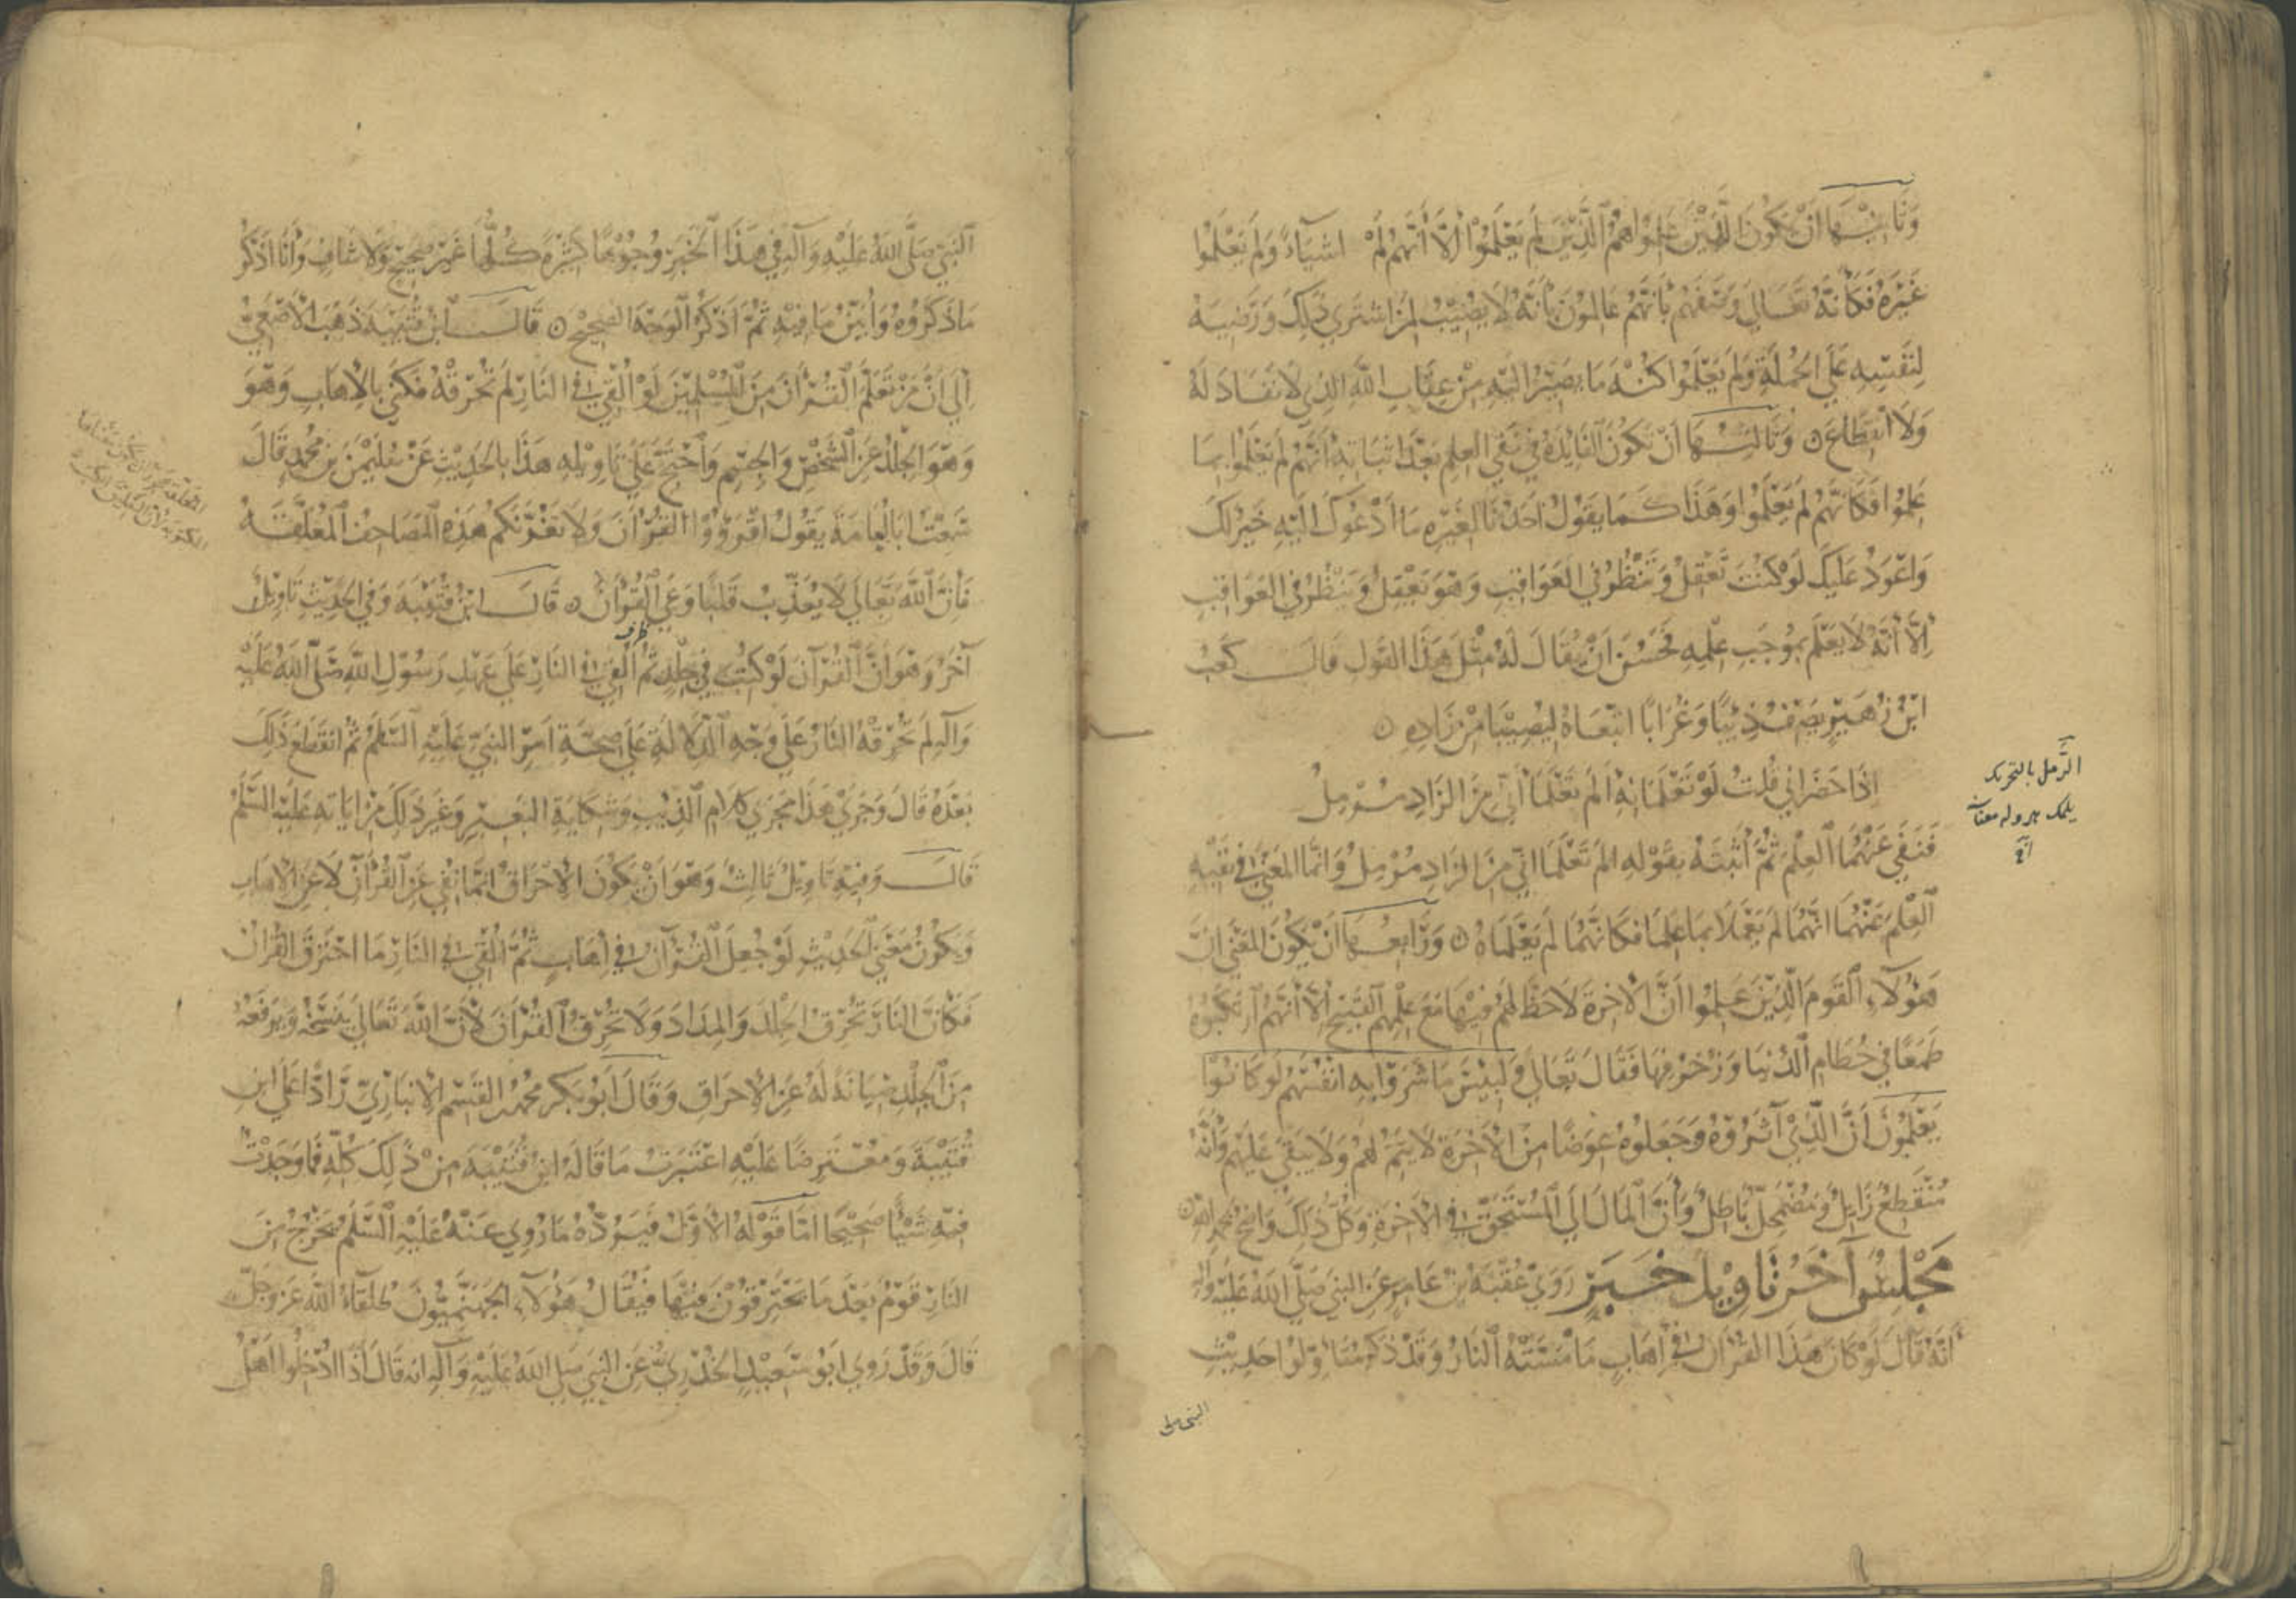 وَثَانِيْهَا أَنْ يَكُونَ الَّذِيْنَ عَلِمُوا هُمُ الَّذِيْنَ لَمْ يَعْلَمُوْا إلَّا أَنَّهُمْ لَمْ اشيَآءَ وَلَمْ يَعْلَمُوا
غَيْرَهُ فَكَأنَّهُ تَعَالَى وَصَفَهُم بِأَنَّهُم عَالِمُوْنَ بِأَنَّهُ لَا نَصِيْبَ لِمَنِ اشترَي ذَلِكَ وَرَضِيَهُ
لِنَفْسِهِ عَلَى الجُمْلَةِ وَلَمْ يَعْلَمُوا كُنْهَ مَا يَصِيْرُ الَيْهِ مِنْ عِقَابِ اللَّهِ الذِي لَا نَفَادَ لَهُ
وَلَا انْقِطَاعَ ۞ وَثَالِثُهَا أَنْ تَكُونَ الفَايِدَةُ فِي نَفْيِ العِلمِ بَعْدَ اثبَاتِهِ أَنَّهُمْ لَمْ يَعْمَلُوا بِمَا
عَلِمُوا فَكَأنَّهُم لَمْ يَعْلَمُوا وَهَذَا كَمَا يَقُولُ اَحَدُنَا لِغَيْرِهِ مَا اَدْعُوكَ الَيْهِ خَيْرٌ لَكَ
وَاعْوَدُ عَلَيكَ لَوْ كُنْتَ تَعْقِلُ وَتَنْظُرُ فِي العَوَاقِبِ وَهُوَ يَعْقِلُ وَيَنْظُرُ فِي العَوَاقِبِ
إلَّا أَنَّهُ لَا يَعْمَلُ بِمُوجَبِ عِلْمِهِ فَحَسُنَ اَنْ يُقَالَ لَهُ مِثْلَ هَذَا القَولِ قالَ كَعْبُ
ابْنُ زُهَيْرٍ يَصِفُ ذِئْبًا وَغُرَابًا اتَّبَعَاهُ لِيُصِيْبَا مِنْ زَادِهِ ۞
اذَا حَضَرَانِي قُلتُ لَوْ تَعْلَمَانِهِ أَلَمْ تَعْلَمَا أَنِّي مِنَ الزَادِ مُرْمِلُ
فَنَفَى عَنْهُمَا العِلْمَ ثُمَّ أَثبَتَهُ بِقَوْلِهِ الم تَعْلَمَا انّي مِنَ الزَادِ مُرْمِلُ وَانَّمَا المَعْنَى فِي نَفْيِهِ
العِلْمَ عَنْهُمَا انَّهُمَا لَمْ يَعْمَلَا بِمَا عَلِمَا فَكَأنَّهُمَا لَمْ يَعْلَمَاهُ ۞ وَرَابِعُهَا اَنْ يَكُونَ المَعْنَى انَّ
هَؤُلَآءِ القَومَ الَّذِيْنَ عَلِمُوا انَّ الْآخِرَةَ لَاحَظَّ لَهُمْ فِيْهَا مَعَ عِلْمِهِم القَبِيْحِ إلَّا أَنَّهُمُ ارتَكَبُوهُ
طَمَعًا فِي حُطَامِ الدُنيَا وَزُخْرُفِهَا فَقَالَ تَعَالى وَلَبِئْسَ مَا شَرَوْا بِهِ انْفُسَهُمْ لَوْ كَانُوا
يَعْلَمُوْنَ اَنَّ الَّذِيْ آثَرُوْهُ وَجَعَلُوهُ عِوَضًا مِنَ الآخِرَةِ لَا يَتِمُّ لَهُمْ وَلَا يَبْقَى عَلَيْهِم وَأَنَّهُ
مُنْقَطِعٌ زَايِلٌ وَمُضْمَحِلٌّ بَاطِلٌ وَأَنَّ المَالَ الَى المُسْتَحَقِّ فِي الآخِرَةِ وَكُلُّ ذَلِكَ وَاضِحٌ بحَمدِ اللهِ ۞
مَجْلِسٌ آخَرُ تَاوِيلُ خَبَرٍ رَوَى عُقْبَةُ بْنُ عَامِرٍ عَنِ النبي صَلَّى اللهُ عَلَيْهِ وآلِهِ
انَّهُ قَالَ لَوْ كَانَ هَذَا القُرْآنُ فِي اِهَابٍ مَا مَسَّتْهُ النَارُ وَقَدْ ذَكَرَ مُتَأوِّلوا حَدِيْثِ
النبي صلى
الرَّمل بالتحريك
يلمك هرولہ معناسنہ
النَبِيِّ صَلَّى اللهُ عَلَيْهِ وَآلِهِ فِي هَذَا الخَبَرِ وُجُوْهًا كَثِيْرَةً كُلُّهَا غَيْرُ صَحِيْحٍ وَلَا شَافٍ وَأَنَا اَذْكُرُ
مَا ذَكَرُوهُ وَأُبَيِّنُ مَا فِيْهِ ثُمَّ اَذْكُرُ الوَجْهَ الصَحِيْحَ ۞ قَالَ ابْنُ قُتَيْبَةَ ذَهَبَ الأصْمَعِيُّ
إلَى أَنَّ مَنْ تَعَلَّمَ القُرْآنَ مِنَ المُسْلِمِيْنَ لَوْ اُلْقِيَ فِي النَارِ لَمْ تُحْرِقْهُ فَكَنَى بِالإهَابِ وَهُوَ
وَهُوَ الجِلْدُ عَنِ الشَّخْصِ وَالجِسْمِ وَاحْتَجَّ عَلَى تَاوِيْلِهِ هَذَا بِالحَدِيْثِ عَنْ سُلَيْمَنَ بْنِ مُحَمَّدٍ قَالَ
سَمِعْتُ ابَا اُمَامَةَ يَقُولُ اقْرَؤُوْا القُرْآنَ وَلَا تَغُرَّنَّكُمْ هَذِهِ المَصَاحِفُ المُعَلَّقَةُ
فَإنَّ اللَّهَ تَعَالَى لَا يُعَذِّبُ قَلْبًا وَعَى القُرْآنَ ۞ قَالَ ابْنُ قُتَيْبَةَ وَفِي الحَدِيْثِ تَاوِيْلٌ
آخَرُ وَهُوَ أَنَّ القُرْآنَ لَوْ كُتِبَ فِي جِلْدٍ ثُمَّ اُلْقِيَ فِي النَارِ عَلَى عَهْدِ رَسُوْلِ اللهِ صَلَّى اللَّهُ عَلَيْهِ
وَآلِهِ لَمْ تُحْرِقْهُ النَارُ عَلَى وَجْهِ الدَّلَالَةِ عَلَى صِحَّةِ اَمْرِ النبيِّ عَلَيْهِ السَّلَمُ ثُمَّ انْقَطَعَ ذَلِكَ
بَعْدَهُ قَالَ وَجَرَى هَذَا مَجْرَى كَلَامِ الذِيبِ وَشِكَايَةِ البَعِيْرِ وَغَيْرِ ذَلِكَ مِنْ ايَاتِهِ عَلَيْهِ السَّلَمُ
قَالَ وَفِيْهِ تَاوِيْلٌ ثَالِثٌ وَهُوَ اَنْ يَكُونَ الْاِحْرَاقُ انَّمَا نُفِيَ عَنِ القُرْآنِ لَا عَنِ الْاهابِ
وَيَكُونُ مَعْنَى الحَدِيْثِ لَوْ جُعِلَ القُرْآنُ فِي اِهَابٍ ثُمَّ اُلْقِيَ فِي النَارِ مَا احْتَرَقَ القُرْآنُ
فَكَأنَّ النَارَ تُحْرِقُ الجِلْدَ وَالمِدَادَ وَلَا تُحْرِقُ القُرْآنَ لأنَّ اللَّهَ تَعَالَى يَنْسَخُهُ وَيَرْفَعُهُ
مِنَ الجِلْدِ صِيَانَةً لَهُ عَنِ الإحْرَاقِ وَقَالَ أَبُوْبَكرٍ مُحَمَّدُ بنُ القَسِمِ الْانبَارِيّ رَادًّا عَلَى ابْنِ
قُتَيْبَةَ وَمُعْتَرِضًا عَلَيْهِ اعْتَبَرْتُ مَا قَالَهُ ابْنُ قُتَيْبَةَ مِنْ ذَلِكَ كُلِّهِ فَمَا وَجَدْتُ
فِيْهِ شَيْئًا صَحِيْحًا امَّا قَوْلُهُ الأوَّلُ فَيَرُدُّهُ مَا رُوِيَ عَنْهُ عَلَيْهِ السَّلَمُ يَخْرُجُ مِنَ
النَارِ قَوْمٌ بَعْدَ مَا يَحْتَرِقُوْنَ فِيْهَا فَيُقَالُ هَؤُلَآءِ الجَهَنَّمِيُّونَ طُلَقَاءُ اللَّهِ عَزَّ وَجَلَّ
قَالَ وَقَدْ رَوَى ابُو سَعِيْدٍ الخُدْرِيُّ عَنِ النَبِيِّ صَلَّى اللهُ عَلَيْهِ وَآلِهِ انه قَالَ اذَا ادْخَلَ اَهْلُ